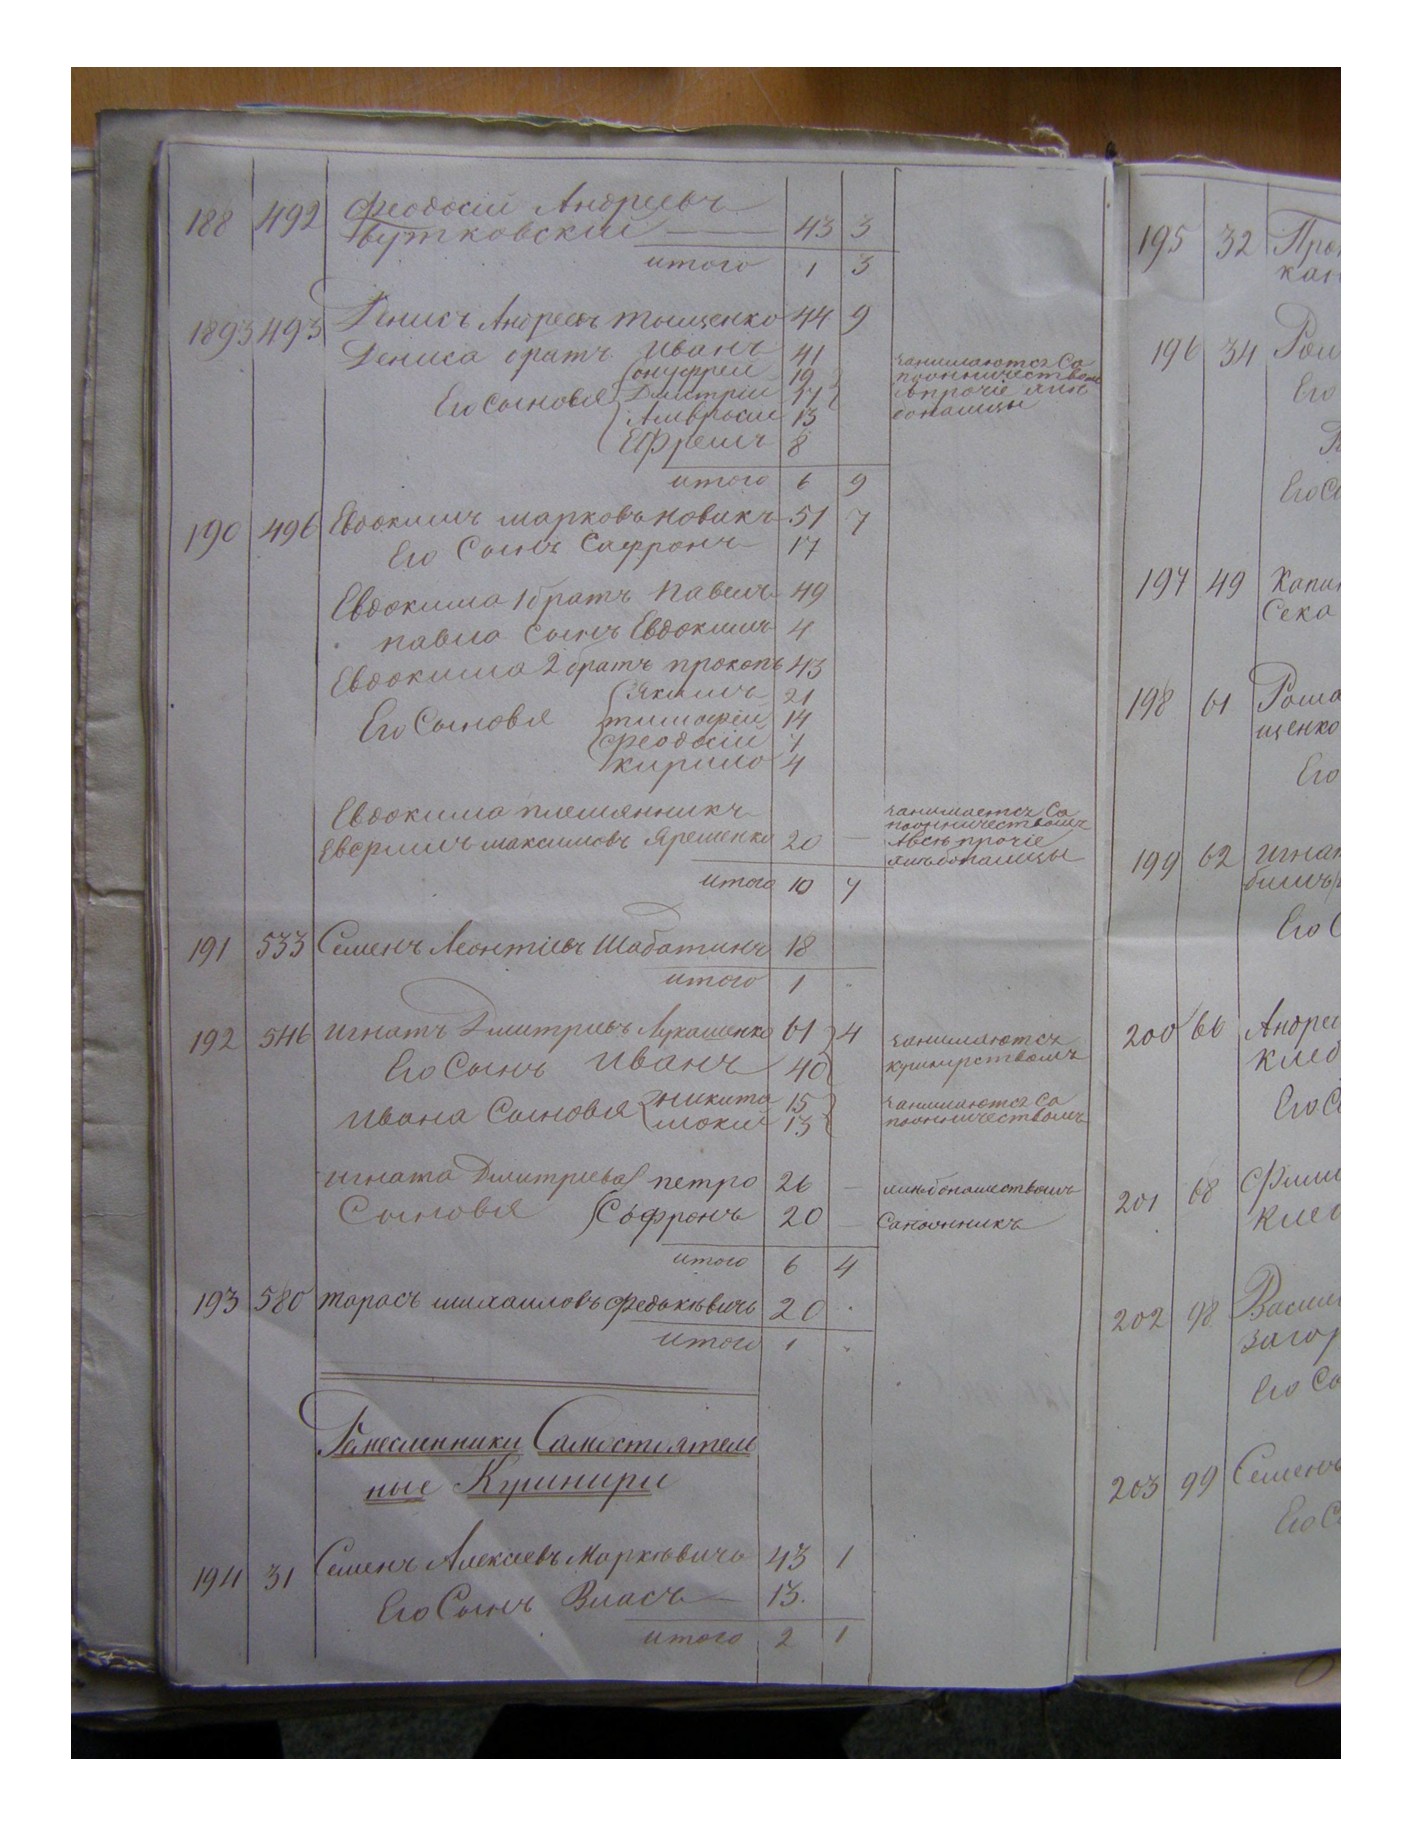 188 492 Феодосій Андреевъ
Вутковскій 43 3
итого 1 3
1893 493 Денисъ Андреевъ Тыщенко 44 9
Дениса братъ Иванъ 41
Его сыновья Онуфрей 19
Дмитрій 17
Амвросій 13
Ефремъ 8
занимаются Са
пожничествомъ
а прочіе хлѣ
бопашцы
итого 6 9
190 496 Евдокимъ Марковъ Новикъ 51 7
Его Сынъ Сафронъ 17
Евдокима 1 братъ Павелъ 49
Павла Сынъ Евдокимъ 4
Евдокима 2 братъ Прокопъ 43
Его Сыновья Якимъ 21
Тимофей 14
Феодосій 7
Кирило 4
Евдокима племянникъ
Максимовъ Яременко 20 —
занимается Са
пожничествомъ
а всѣ прочіе
хлѣбопашцы
итого 10 7
191 533 Семенъ Леонтіевъ Шабатинъ 18
итого 1 .
192 546 Игнатъ Дмитріевъ Лукашенко 61 4 занимаются
Его Сынъ Иванъ 40 кушнирствомъ
Ивана Сыновья Никита 15 занимаются Са
Мокій 13 пожничествомъ
Игната Дмитріева Петро 26 — хлѣбопашествомъ
Сыновья Софронъ 20 — Сапожникъ
итого 6 4
193 580 Тарасъ Михаиловъ Федькѣвичъ 20 .
итого 1 .
Ремесленники Самостоятель
ные Кушнири
194 31 Семенъ Алексеевъ Маркѣвичъ 43 1
Его Сынъ Власъ — 13.
итого 2 1
195 32 Про
кан
196 34 Ром
Его
Его С
197 49 Хари
Сека
198 61 Рома
щенко
Его
199 62 Игнат
Его С
200 66 Андре
Клеб
Его С
201 68
Клеб
202 98 Васил
Загор
Его Со
203 99 Семенъ
Его С